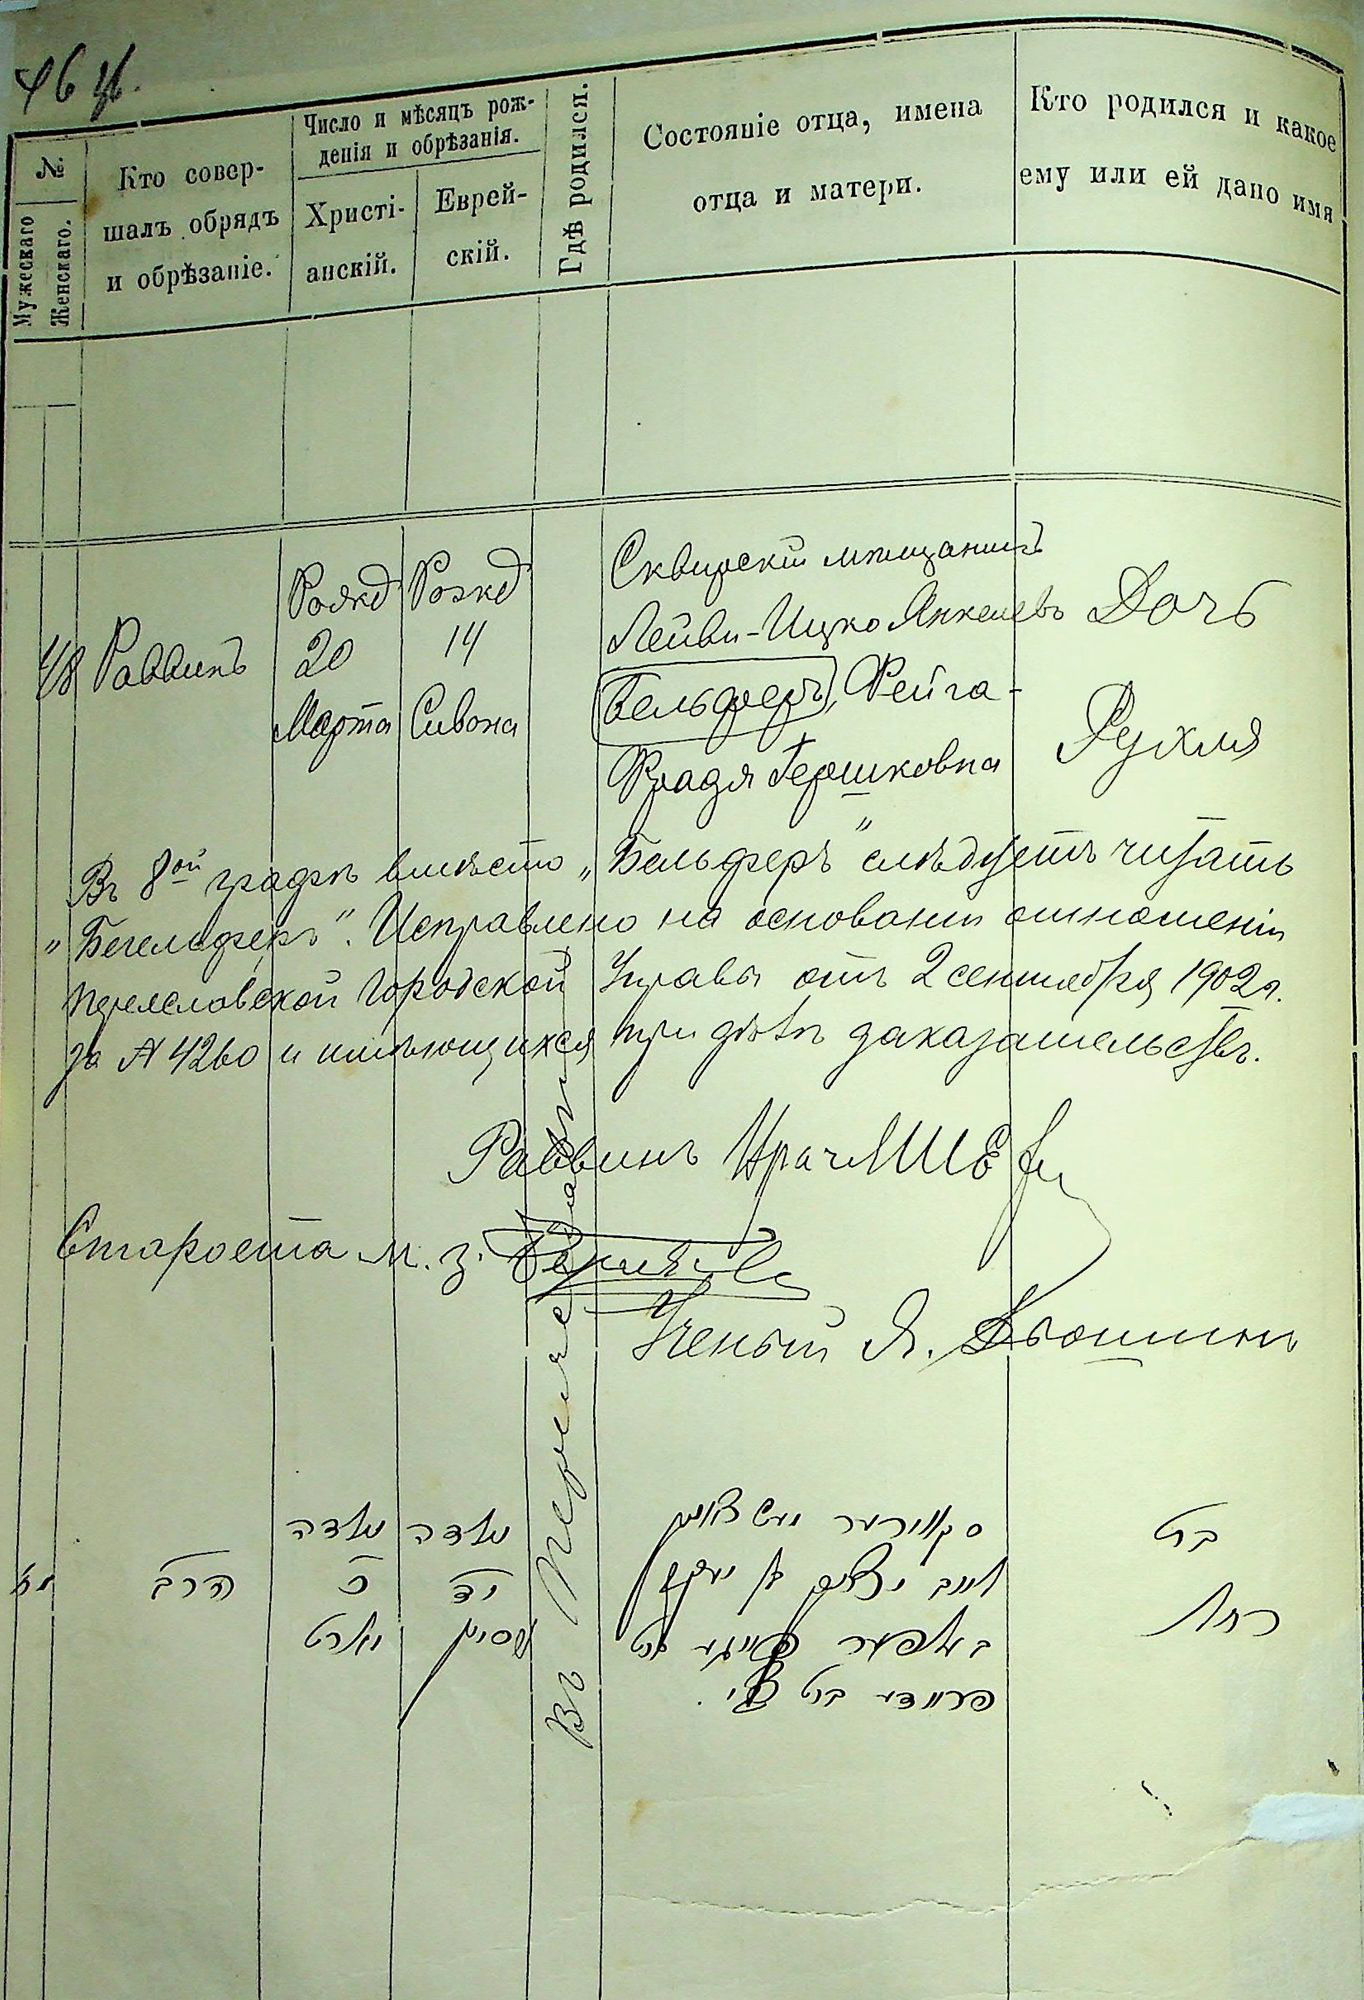 №
Мужескаго
Женскаго.
Кто совер-
шалъ обрядъ
и обрѣзаніе.
Число и мѣсяцъ рож-
денія и обрѣзанія.
Христі-
анскій.
Еврей-
скій.
Гдѣ родился.
Состояніе отца, имена
отца и матери.
Кто родился и какое
ему или ей дано имя
48
Раввинъ
Рожд
20
Марта
Рожд
14
Сивона
Въ
Сквирскій мѣщанинъ
Лейви-Ицко Янкелевъ
Бельферъ, Фейга-
Фрадя Гершковна
Дочь
Рухля
Въ 8ой графѣ вмѣсто „Бельферъ" слѣдуетъ читать
„Бегельферъ". Исправлено на основаніи отношенія
Переяславской Городской Управы отъ 2 сентября 1902 г.
за № 4260 и имѣющихся при дѣлѣ доказательствъ.
Раввинъ
Староста м. з.
Ученый Я.
הרב
נולדה
כ
מארט
נולדה
יד
סיון
סקווירער
בת
רחל